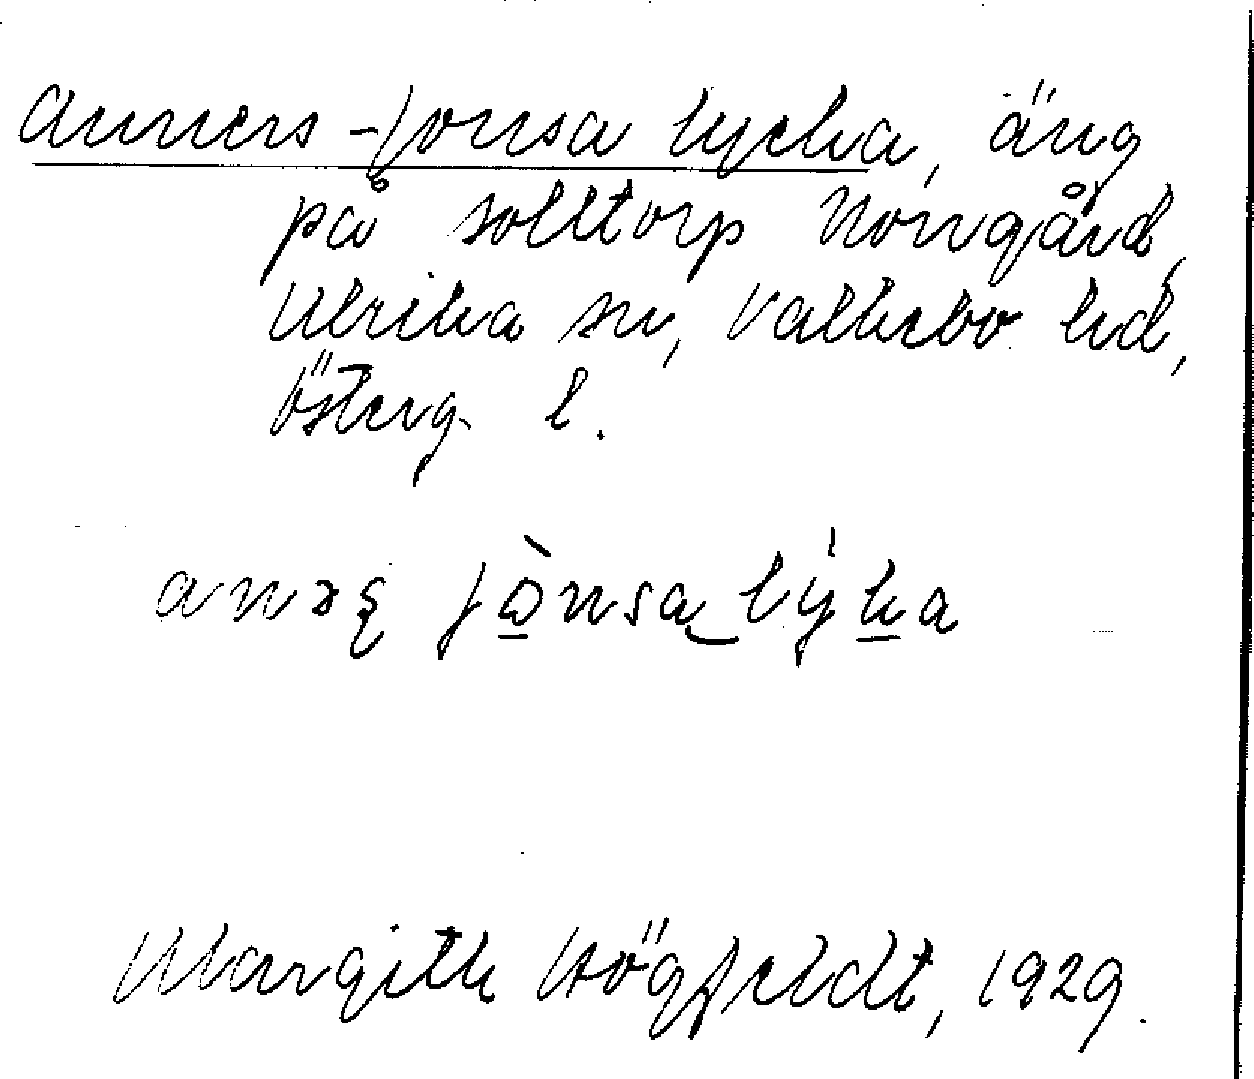 Anners-Jonsa lycka, äng
på Solltorp Norrgård,
Ulrika sn, Vallebo hd,
Österg. l.
anəʂ jònsa‿lýka
Margith Högfeldt, 1929.